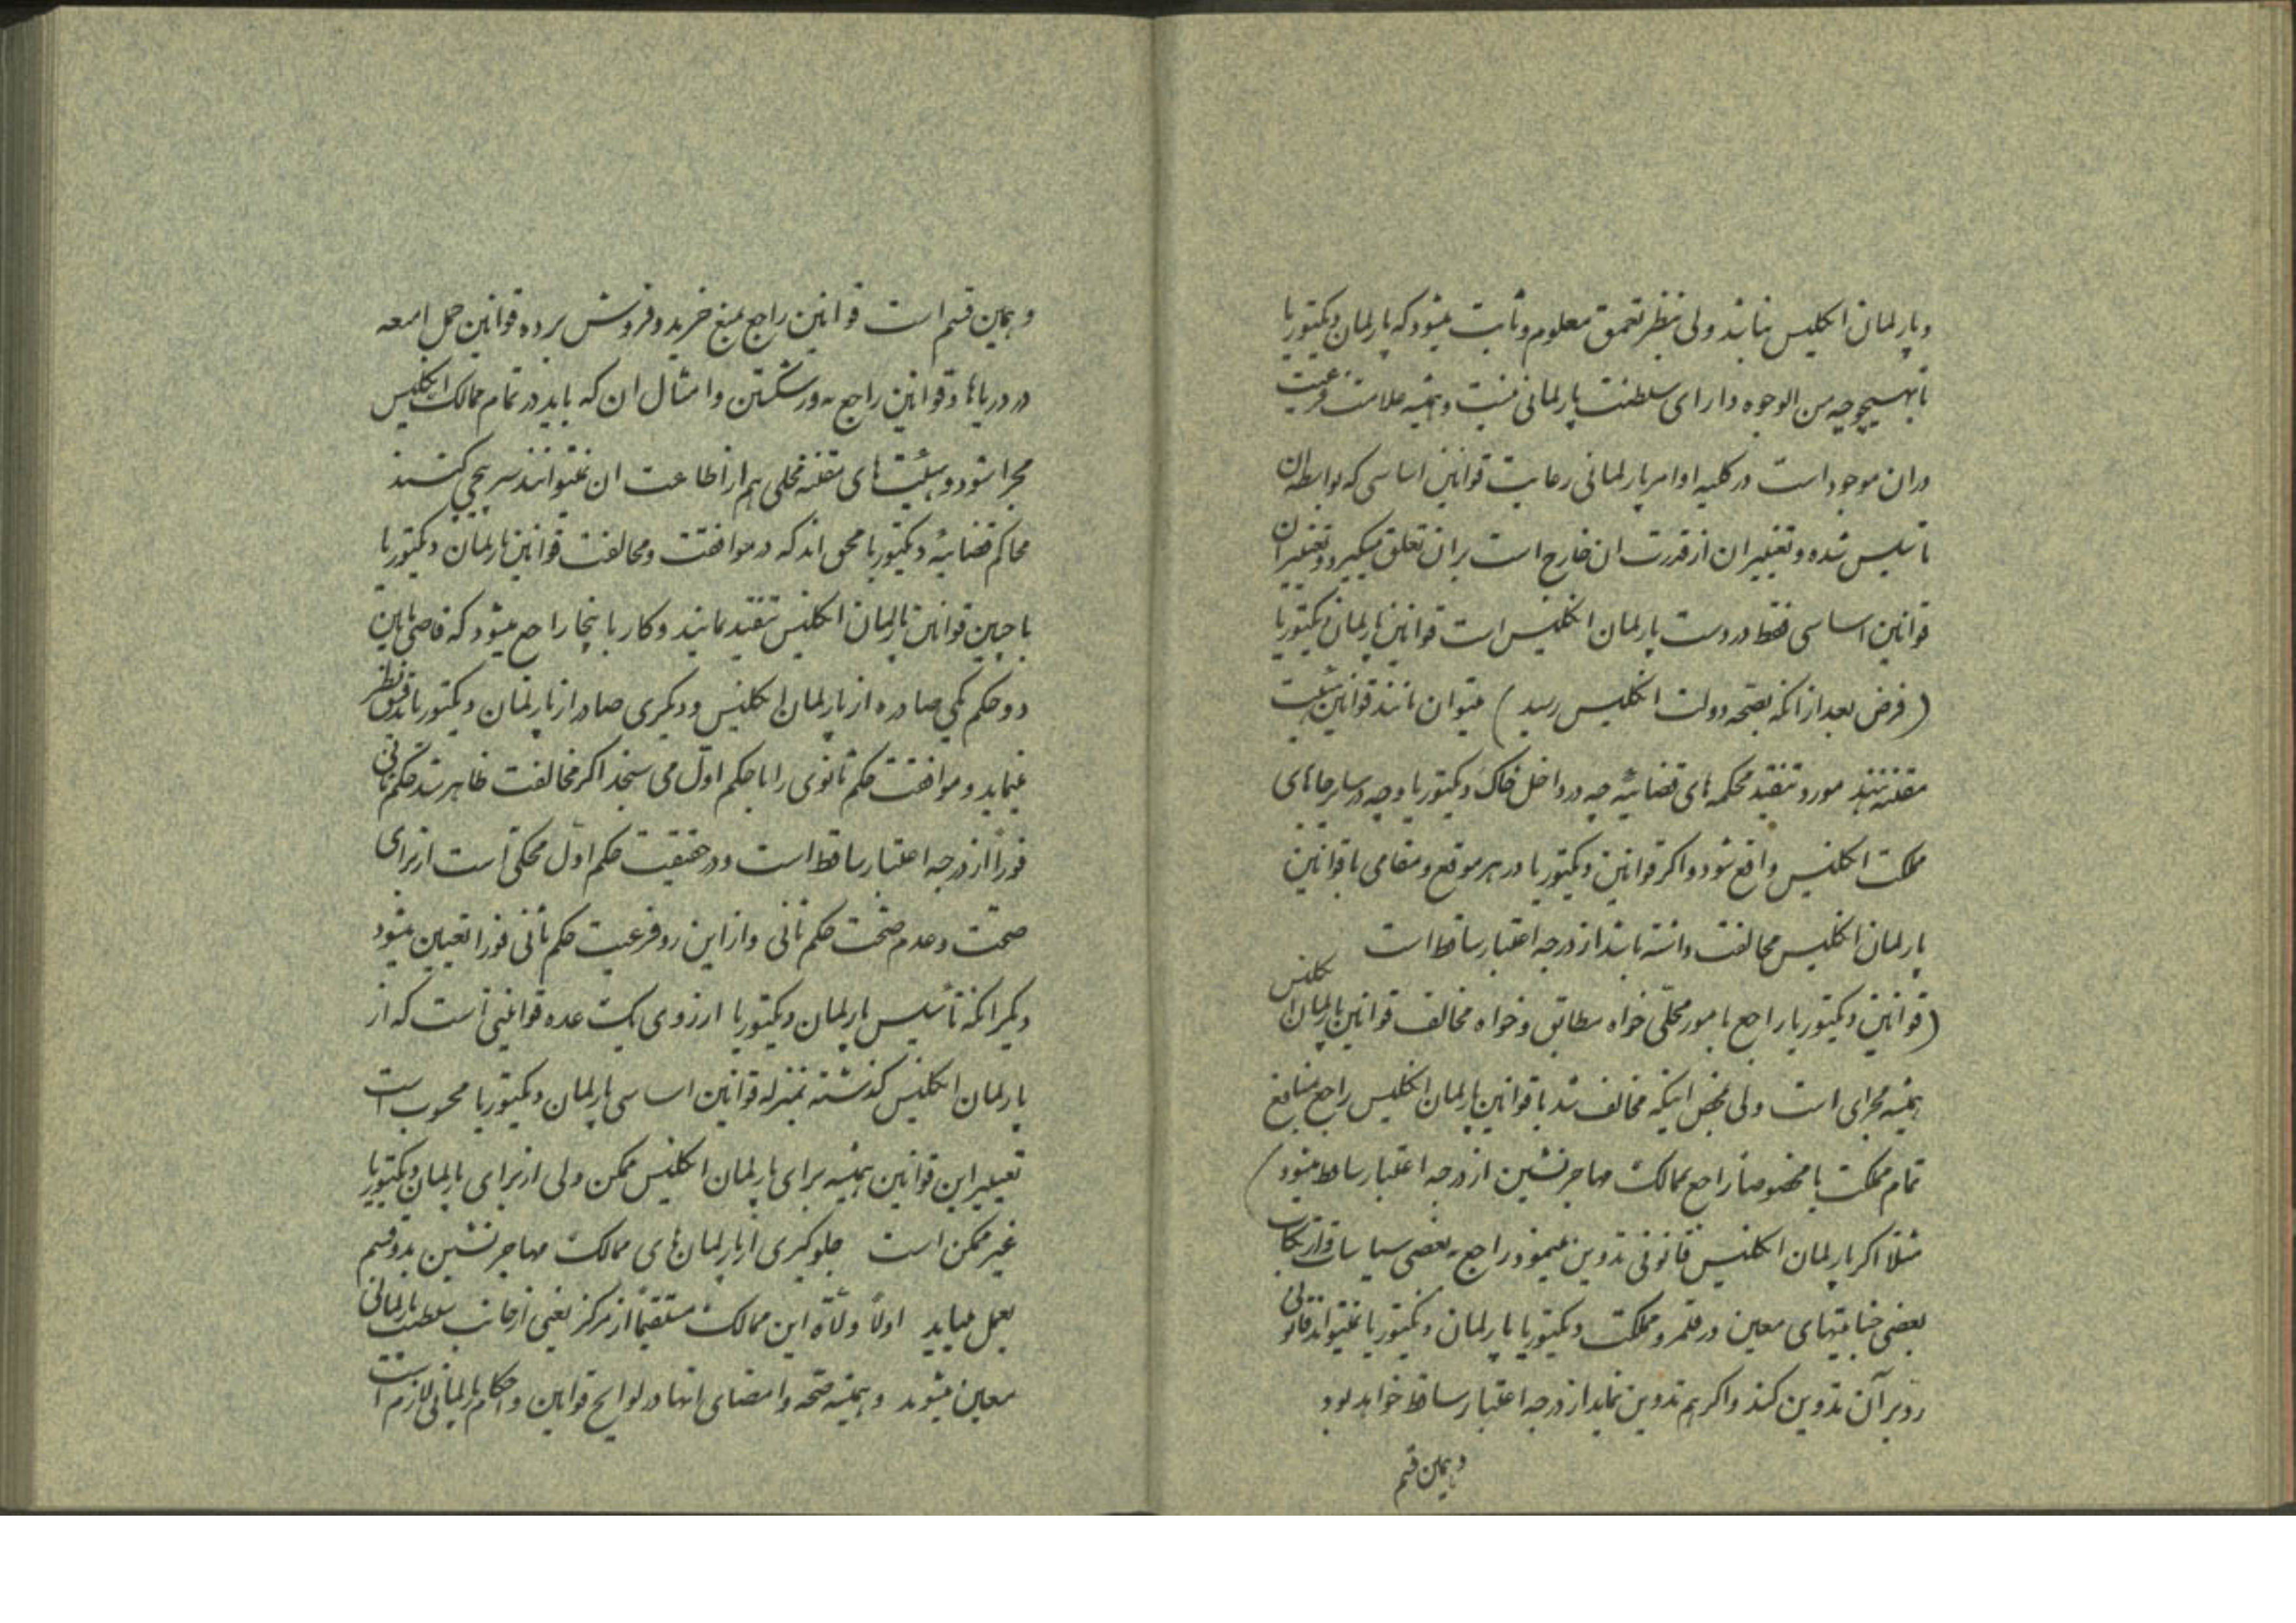 و پارلمان انگلیس میباشد ولی بنظر تعمق معلوم و ثابت میشود که پارلمان ویکتوریا
بهیچوجه من الوجوه دارای سلطنت پارلمانی نیست و همیشه علامت فرعیت
دران موجود است در کلیه اوامر پارلمانی رعایت قوانین اساسی که بواسطه ان
تاسیس شده و تغییر ان از قدرت ان خارج است بران تعلق میگیرد و تغییر ان
قوانین اساسی فقط در دست پارلمان انگلیس است قوانین پارلمان ویکتوریا
(فرض بعد از انکه بصحه دولت انگلیس رسید) میتوان مانند قوانین هیئت
مقننه مورد تنقید محکمه های قضائیه چه در داخل خاک ویکتوریا و چه در سایر جاهای
مملکت انگلیس واقع شود و اگر قوانین ویکتوریا در هر موقع و مقامی با قوانین
پارلمان انگلیس مخالفت داشته باشد از درجه اعتبار ساقط است
(قوانین ویکتوریا راجع بامور محلی خواه مطابق و خواه مخالف قوانین پارلمان انگلیس
همیشه مجرای است ولی بمحض اینکه مخالف شد با قوانین پارلمان انگلیس راجع بمنافع
تمام مملکت یا مخصوصاً راجع بممالک مهاجرنشین از درجه اعتبار ساقط میشود)
مثلا اگر پارلمان انگلیس قانونی تدوین نمود راجع به بعضی سیاسات و ارتکاب
بعضی جنایتهای معین در قلمرو مملکت ویکتوریا پارلمان ویکتوریا نمیتواند قانونی
رد بر آن تدوین کند و اگر هم تدوین نماید از درجه اعتبار ساقط خواهد بود
و همین قسم
و همین قسم است قوانین راجع بمنع خرید و فروش برده قوانین حمل امتعه
در دریاها و قوانین راجع به ورشکستن و امثال ان که باید در تمام ممالک انگلیس
مجرا شود و هیئت های مقننه محلی هم از اطاعت ان نمیتوانند سرپیچی کنند
محاکم قضائیه ویکتوریا محق اند که در موافقت و مخالفت قوانین پارلمان ویکتوریا
با چنین قوانین پارلمان انگلیس تنقید نمایند و کار باینجا راجع میشود که قاضی مابین
دو حکم یکی صادره از پارلمان انگلیس و دیگری صادر از پارلمان ویکتوریا تدقیق نظر
مینماید و موافقت حکم ثانوی را با حکم اول می سنجد اگر مخالفت ظاهر شد حکم ثانی
فوراً از درجه اعتبار ساقط است و در حقیقت حکم اول محکی است از برای
صحت و عدم صحت حکم ثانی و از این رو فرعیت حکم ثانی فورا تعیین میشود
دیگر انکه تأسیس پارلمان ویکتوریا از روی یک عده قوانینی است که از
پارلمان انگلیس گذشته بمنزله قوانین اساسی پارلمان ویکتوریا محسوب است
تغییر این قوانین همیشه برای پارلمان انگلیس ممکن ولی از برای پارلمان ویکتوریا
غیر ممکن است جلوگیری از پارلمان های ممالک مهاجرنشین بدو قسم
بعمل میاید اولاً ولاة این ممالک مستقیماً از مرکز یعنی از جانب سلطنت پارلمانی
معین میشوند و همیشه صحه و امضای انها در لوایح قوانین و احکام پارلمانی لازم است